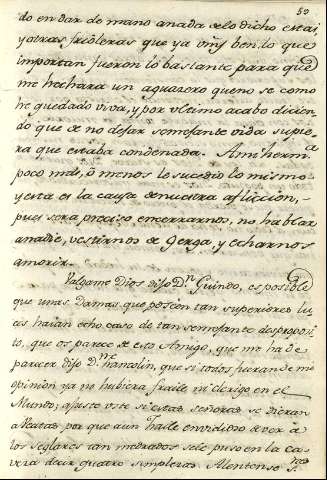 50
do en dar de mano anada de lo dicho estai,
yotras frioleras que ya vms ben. lo que
importan fueron lo bastante para que
me hechara un aguazero que no se como
he quedado viva, y por ultimo acabo dicien
do que de no dejar semejante vida supie
ra que estaba condenada. Ami herm.a
poco mas, ô menos le sucedio lo mismo
yesta es la causa de nuestra afliccion,
pues sera preciso encerrarnos, no hablar
anadie, vestirnos de Gerga, y echarnos
amorir.
Valgame Dios dijo D.n Guindo, es posible
que unas Damas que poseen tan superiores lu
ces haian echo caso de tan semejante desproposi
to, que os parece de esto Amigo, que me ha de
parecer dijo D.n que si todos fueran de mi
opinion ya no hubiera fraile ni clerigo en el
Mundo; ajuste vste si estas señoras se dieran
a Beatas por que aun fraile envidioso de ver a
los seglares tan medrados se le puso en la ca-
veza decir quatro simplezas. Mentonse S.ras